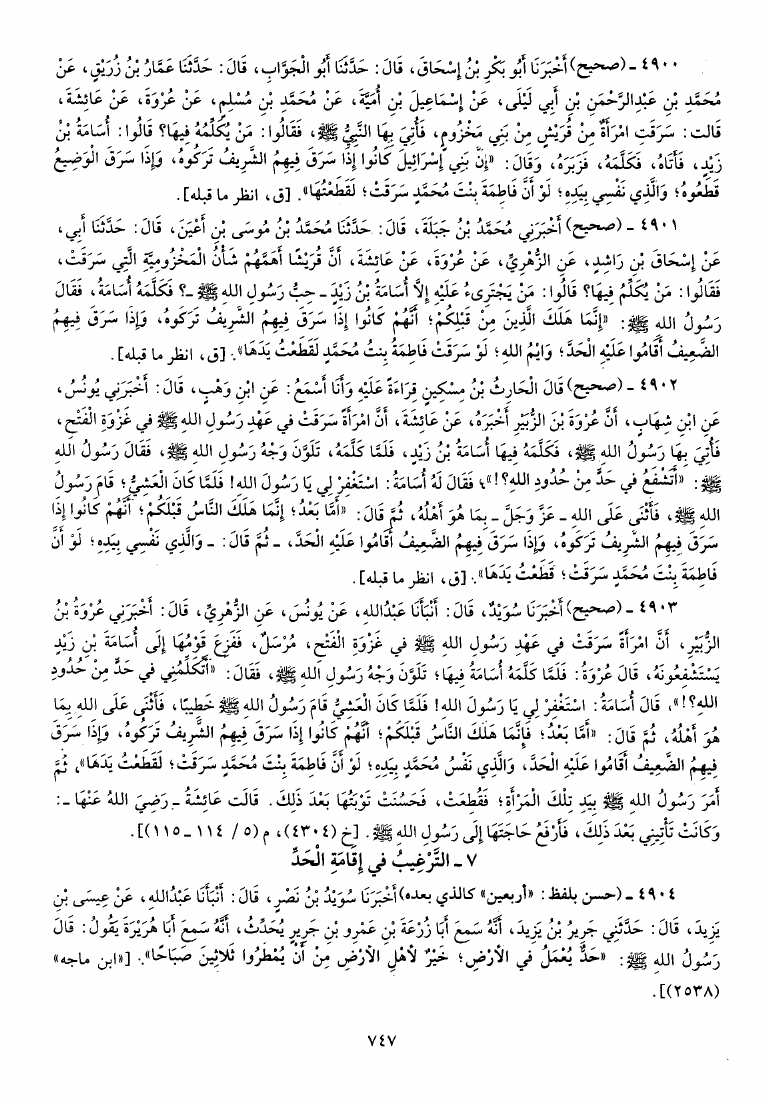 ٤٩٠٠ ـ (صحيح) أَخْبَرَنَا أَبُو بَكْرِ بْنُ إِسْحَاقَ، قَالَ: حَدَّثَنَا أَبُو الْجَوَّابِ، قَالَ: حَدَّثَنَا عَمَّارُ بْنُ زُرَيْقٍ، عَنْ
مُحَمَّدِ بْنِ عَبْدِالرَّحْمَنِ بْنِ أَبِي لَيْلَى، عَنْ إِسْمَاعِيلَ بْنِ أُمَيَّةَ، عَنْ مُحَمَّدِ بْنِ مُسْلِمٍ، عَنْ عُرْوَةَ، عَنْ عَائِشَةَ،
قَالت: سَرَقَتِ امْرَأَةٌ مِنْ قُرَيْشٍ مِنْ بَنِي مَخْزُومٍ، فَأُتِيَ بِهَا النَّبِيُّ ﷺ، فَقَالُوا: مَنْ يُكَلِّمُهُ فِيهَا؟ قَالُوا: أُسَامَةُ بْنُ
زَيْدٍ، فَأَتَاهُ، فَكَلَّمَهُ، فَزَبَرَهُ، وَقَالَ: «إِنَّ بَنِي إِسْرَائِيلَ كَانُوا إِذَا سَرَقَ فِيهِمُ الشَّرِيفُ تَرَكُوهُ، وَإِذَا سَرَقَ الْوَضِيعُ
قَطَعُوهُ؛ وَالَّذِي نَفْسِي بِيَدِهِ؛ لَوْ أَنَّ فَاطِمَةَ بِنْتَ مُحَمَّدٍ سَرَقَتْ؛ لَقَطَعْتُهَا». [ق، انظر ما قبله].
٤٩٠١ ـ (صحيح) أَخْبَرَنِي مُحَمَّدُ بْنُ جَبَلَةَ، قَالَ: حَدَّثَنَا مُحَمَّدُ بْنُ مُوسَى بْنِ أَعْيَنَ، قَالَ: حَدَّثَنَا أَبِي،
عَنْ إِسْحَاقَ بْنِ رَاشِدٍ، عَنِ الزُّهْرِيِّ، عَنْ عُرْوَةَ، عَنْ عَائِشَةَ، أَنَّ قُرَيْشًا أَهَمَّهُمْ شَأْنُ الْمَخْزُومِيَّةِ الَّتِي سَرَقَتْ،
فَقَالُوا: مَنْ يُكَلِّمُ فِيهَا؟ قَالُوا: مَنْ يَجْتَرِىءُ عَلَيْهِ إِلاَّ أُسَامَةُ بْنُ زَيْدٍ ـ حِبُّ رَسُولِ اللهِ ﷺ ـ؟ فَكَلَّمَهُ أُسَامَةُ، فَقَالَ
رَسُولُ اللهِ ﷺ: «إِنَّمَا هَلَكَ الَّذِينَ مِنْ قَبْلِكُمْ؛ أَنَّهُمْ كَانُوا إِذَا سَرَقَ فِيهِمُ الشَّرِيفُ تَرَكُوهُ، وَإِذَا سَرَقَ فِيهِمُ
الضَّعِيفُ أَقَامُوا عَلَيْهِ الْحَدَّ؛ وَايْمُ اللهِ؛ لَوْ سَرَقَتْ فَاطِمَةُ بِنتُ مُحَمَّدٍ لَقَطَعْتُ يَدَهَا». [ق، انظر ما قبله].
٤٩٠٢ ـ (صحيح) قَالَ الْحَارِثُ بْنُ مِسْكِينٍ قِرَاءَةً عَلَيْهِ وَأَنَا أَسْمَعُ: عَنِ ابْنِ وَهْبٍ، قَالَ: أَخْبَرَنِي يُونُسُ،
عَنِ ابْنِ شِهَابٍ، أَنَّ عُرْوَةَ بْنَ الزُّبَيْرِ أَخْبَرَهُ، عَنْ عَائِشَةَ، أَنَّ امْرَأَةً سَرَقَتْ فِي عَهْدِ رَسُولِ اللهِ ﷺ فِي غَزْوَةِ الْفَتْحِ،
فَأُتِيَ بِهَا رَسُولُ اللهِ ﷺ، فَكَلَّمَهُ فِيهَا أُسَامَةُ بْنُ زَيْدٍ، فَلَمَّا كَلَّمَهُ، تَلَوَّنَ وَجْهُ رَسُولِ اللهِ ﷺ، فَقَالَ رَسُولُ اللهِ
ﷺ: «أَتَشْفَعُ فِي حَدٍّ مِنْ حُدُودِ اللهِ؟!»؛ فَقَالَ لَهُ أُسَامَةُ: اسْتَغْفِرْ لِي يَا رَسُولَ اللهِ! فَلَمَّا كَانَ الْعَشِيُّ؛ قَامَ رَسُولُ
اللهِ ﷺ، فَأَثْنَى عَلَى اللهِ ـ عَزَّ وَجَلَّ ـ بِمَا هُوَ أَهْلُهُ، ثُمَّ قَالَ: «أَمَّا بَعْدُ؛ إِنَّمَا هَلَكَ النَّاسُ قَبْلَكُمْ؛ أَنَّهُمْ كَانُوا إِذَا
سَرَقَ فِيهِمُ الشَّرِيفُ تَرَكُوهُ، وَإِذَا سَرَقَ فِيهِمُ الضَّعِيفُ أَقَامُوا عَلَيْهِ الْحَدَّ، ـ ثُمَّ قَالَ: ـ وَالَّذِي نَفْسِي بِيَدِهِ؛ لَوْ أَنَّ
فَاطِمَةَ بِنْتَ مُحَمَّدٍ سَرَقَتْ؛ قَطَعْتُ يَدَهَا». [ق، انظر ما قبله].
٤٩٠٣ ـ (صحيح) أَخْبَرَنَا سُوَيْدٌ، قَالَ: أَنْبَأَنَا عَبْدُاللهِ، عَنْ يُونُسَ، عَنِ الزُّهْرِيِّ، قَالَ: أَخْبَرَنِي عُرْوَةُ بْنُ
الزُّبَيْرِ، أَنَّ امْرَأَةً سَرَقَتْ فِي عَهْدِ رَسُولِ اللهِ ﷺ فِي غَزْوَةِ الْفَتْحِ، مُرْسَلٌ، فَفَزِعَ قَوْمُهَا إِلَى أُسَامَةَ بْنِ زَيْدٍ
يَسْتَشْفِعُونَهُ، قَالَ عُرْوَةُ: فَلَمَّا كَلَّمَهُ أُسَامَةُ فِيهَا؛ تَلَوَّنَ وَجْهُ رَسُولِ اللهِ ﷺ، فَقَالَ: «أَتُكَلِّمُنِي فِي حَدٍّ مِنْ حُدُودِ
اللهِ؟!»، قَالَ أُسَامَةُ: اسْتَغْفِرْ لِي يَا رَسُولَ اللهِ! فَلَمَّا كَانَ الْعَشِيُّ قَامَ رَسُولُ اللهِ ﷺ خَطِيبًا، فَأَثْنَى عَلَى اللهِ بِمَا
هُوَ أَهْلُهُ، ثُمَّ قَالَ: «أَمَّا بَعْدُ؛ فَإِنَّمَا هَلَكَ النَّاسُ قَبْلَكُمْ؛ أَنَّهُمْ كَانُوا إِذَا سَرَقَ فِيهِمُ الشَّرِيفُ تَرَكُوهُ، وَإِذَا سَرَقَ
فِيهِمُ الضَّعِيفُ أَقَامُوا عَلَيْهِ الْحَدَّ، وَالَّذِي نَفْسُ مُحَمَّدٍ بِيَدِهِ؛ لَوْ أَنَّ فَاطِمَةَ بِنْتَ مُحَمَّدٍ سَرَقَتْ؛ لَقَطَعْتُ يَدَهَا»، ثُمَّ
أَمَرَ رَسُولُ اللهِ ﷺ بِيَدِ تِلْكَ الْمَرْأَةِ؛ فَقُطِعَتْ، فَحَسُنَتْ تَوْبَتُهَا بَعْدَ ذَلِكَ. قَالَت عَائِشَةُ ـ رَضِيَ اللهُ عَنْهَا ـ:
وَكَانَتْ تَأْتِينِي بَعْدَ ذَلِكَ، فَأَرْفَعُ حَاجَتَهَا إِلَى رَسُولِ اللهِ ﷺ. [خ (٤٣٠٤)، م (٥/ ١١٤ ـ ١١٥)].
٧ ـ التَّرْغِيبُ فِي إِقَامَةِ الْحَدِّ
٤٩٠٤ ـ (حسن بلفظ: «أربعين» كالذي بعده) أَخْبَرَنَا سُوَيْدُ بْنُ نَصْرٍ، قَالَ: أَنْبَأَنَا عَبْدُاللهِ، عَنْ عِيسَى بْنِ
يَزِيدَ، قَالَ: حَدَّثَنِي جَرِيرُ بْنُ يَزِيدَ، أَنَّهُ سَمِعَ أَبَا زُرْعَةَ بْنَ عَمْرِو بْنِ جَرِيرٍ يُحَدِّثُ، أَنَّهُ سَمِعَ أَبَا هُرَيْرَةَ يَقُولُ: قَالَ
رَسُولُ اللهِ ﷺ: «حَدٌّ يُعْمَلُ فِي الأَرْضِ؛ خَيْرٌ لأَهْلِ الأَرْضِ مِنْ أَنْ يُمْطَرُوا ثَلاَثِينَ صَبَاحًا». [«ابن ماجه»
(٢٥٣٨)].
٧٤٧